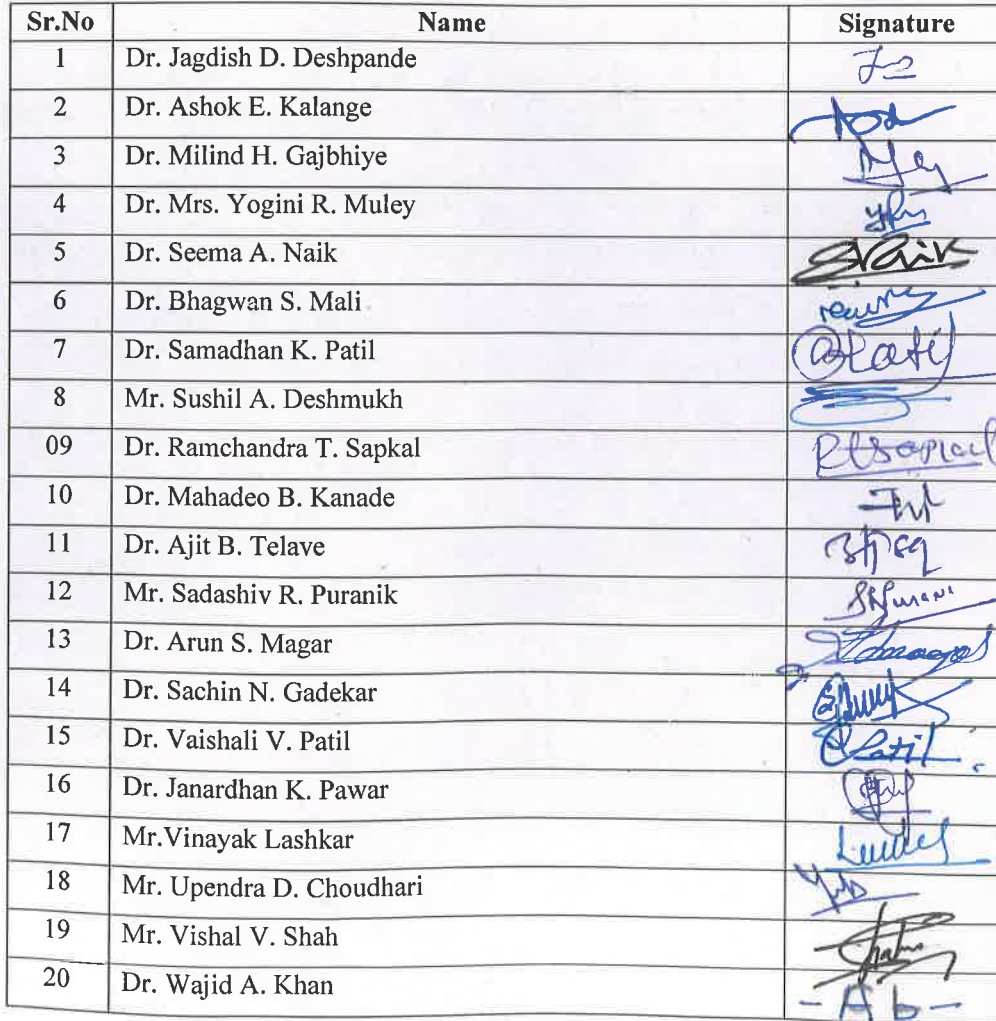 Sr.No Name Signature
1 Dr. Jagdish D. Deshpande
2 Dr. Ashok E. Kalange
3 Dr. Milind H. Gajbhiye
4 Dr. Mrs. Yogini R. Muley
5 Dr. Seema A. Naik SNaik
6 Dr. Bhagwan S. Mali
7 Dr. Samadhan K. Patil Patil
8 Mr. Sushil A. Deshmukh
09 Dr. Ramchandra T. Sapkal
10 Dr. Mahadeo B. Kanade
11 Dr. Ajit B. Telave
12 Mr. Sadashiv R. Puranik
13 Dr. Arun S. Magar
14 Dr. Sachin N. Gadekar
15 Dr. Vaishali V. Patil Patil
16 Dr. Janardhan K. Pawar
17 Mr.Vinayak Lashkar
18 Mr. Upendra D. Choudhari
19 Mr. Vishal V. Shah
20 Dr. Wajid A. Khan - Ab -